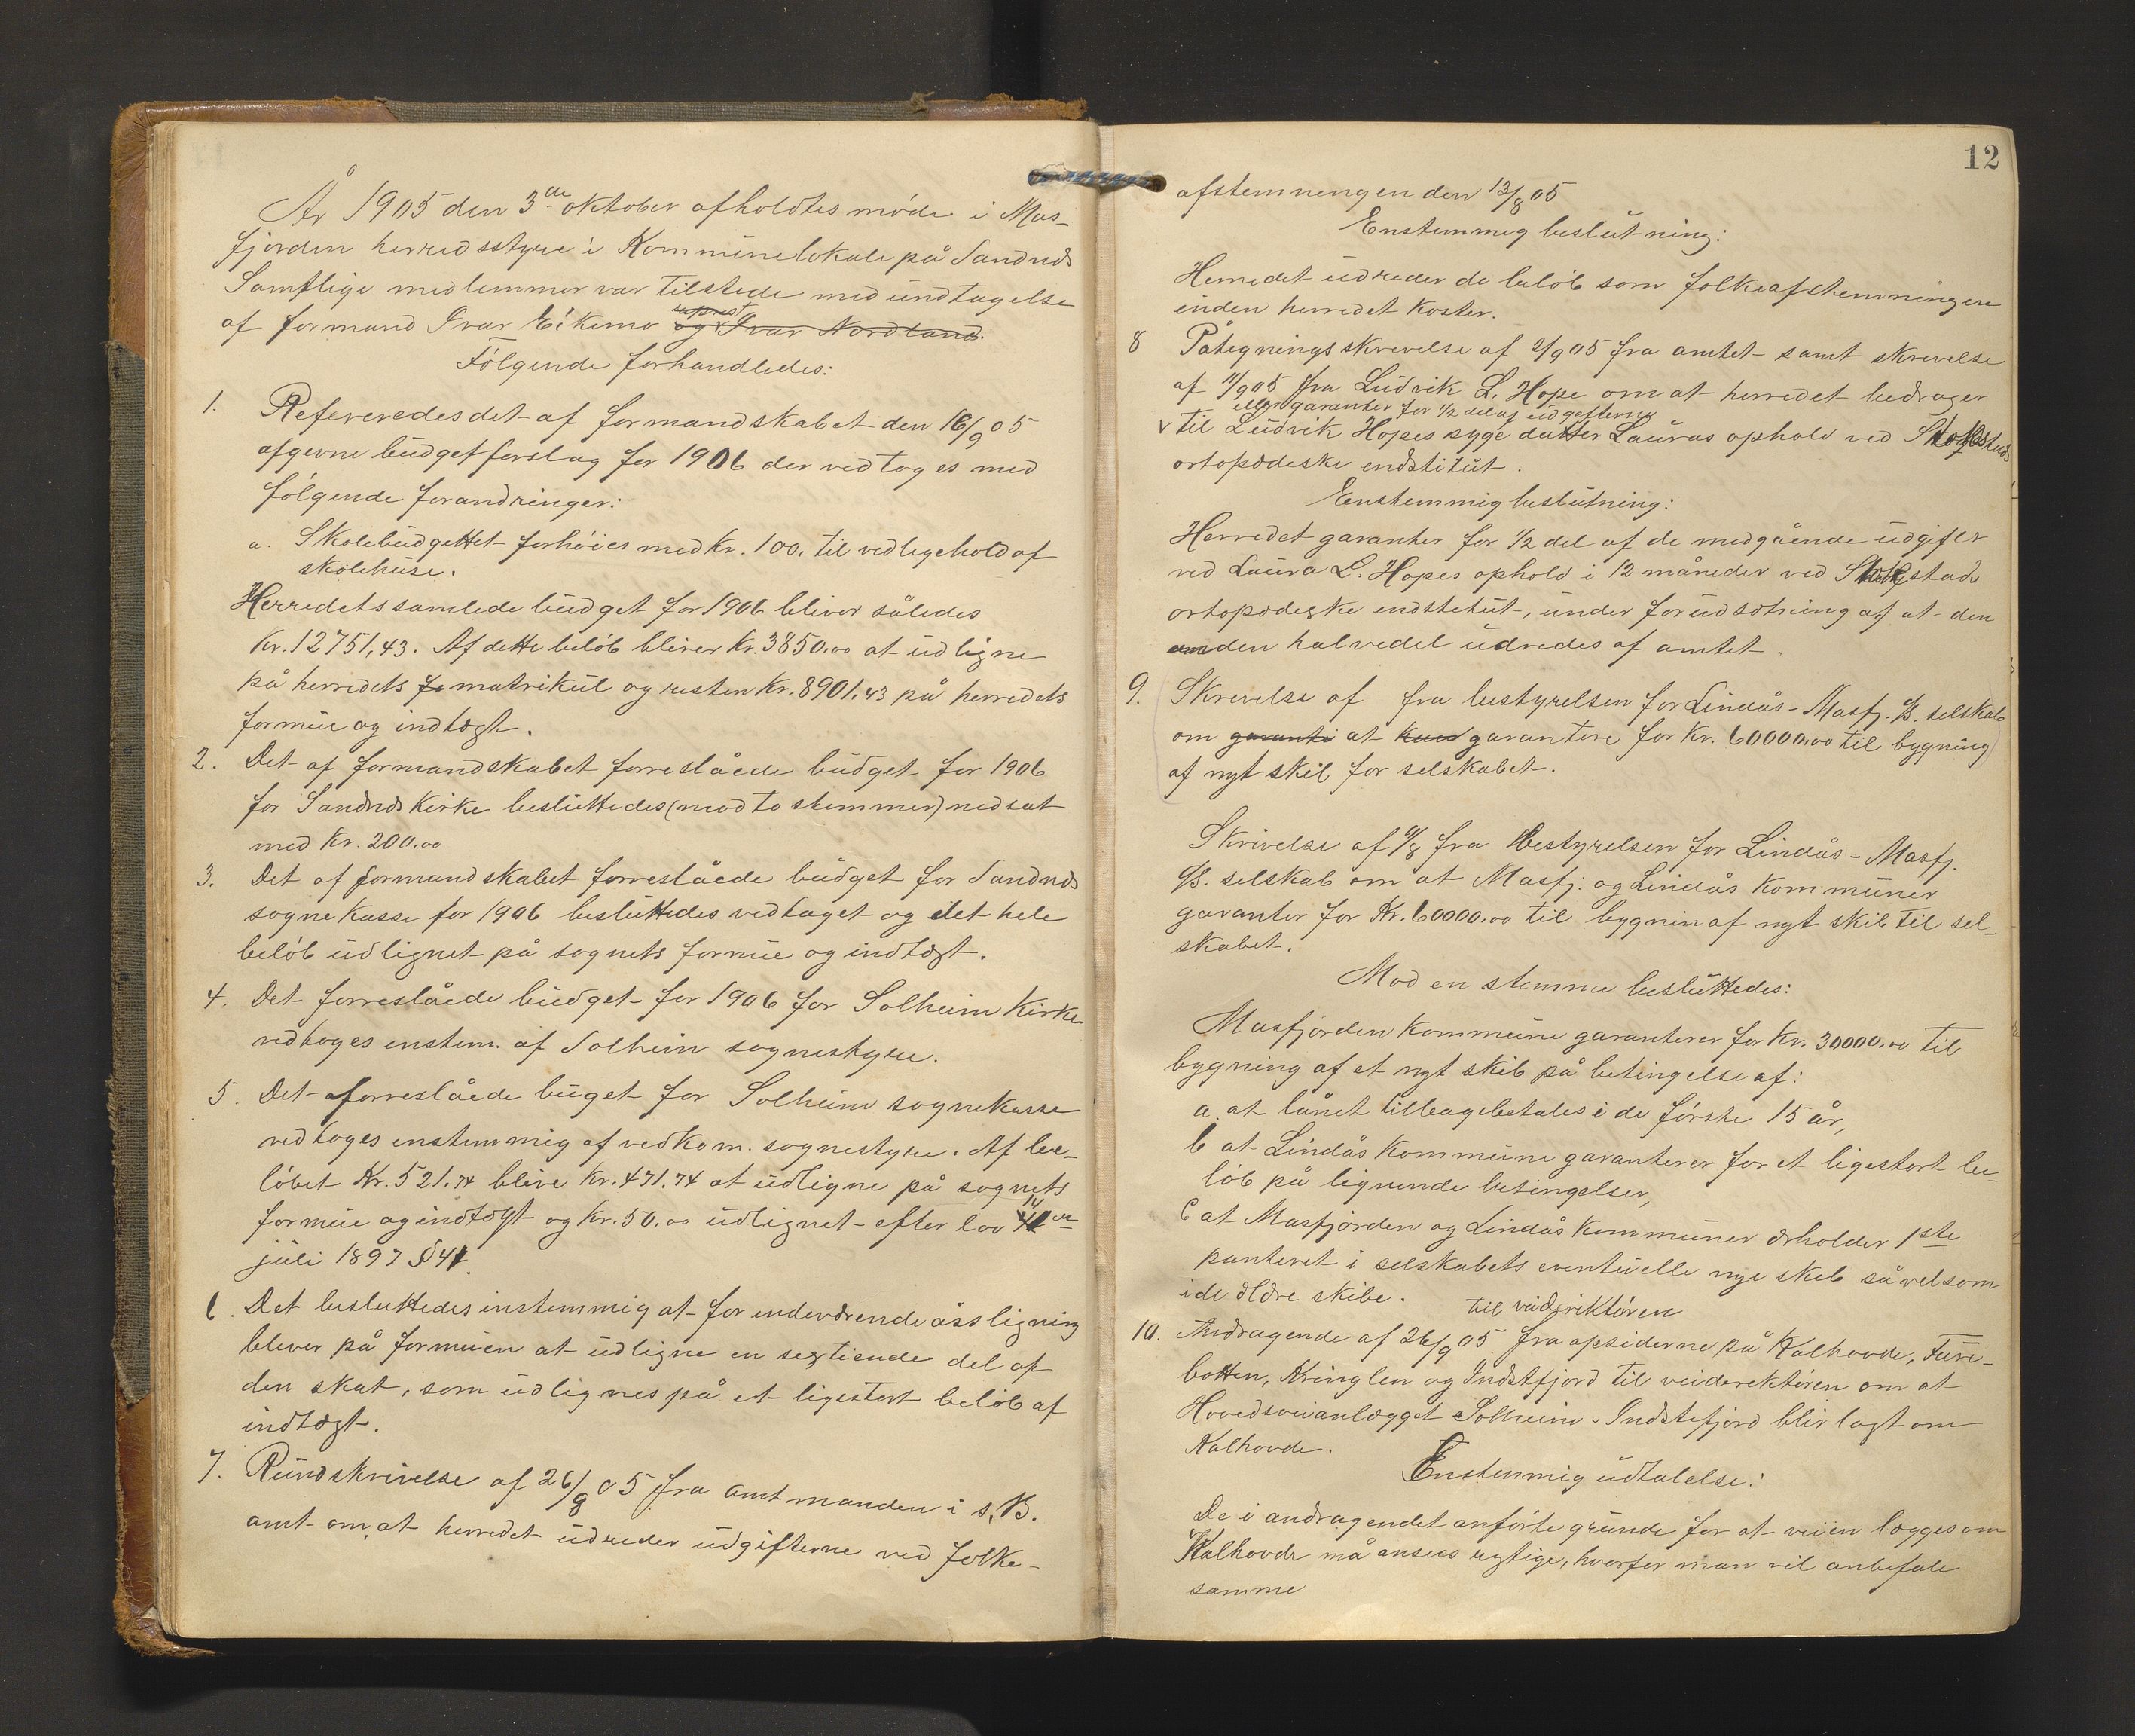 År 1905 den 3die oktober afholdtes møde i Mas-
fjorden herredsstyre i Kommunelokale på Sandnæs
Samtlige medlemmer var tilstede med undtagelse
af formand Ivar Eikemo og Ivar Nordland.
Følgende forhandledes:
1. Refereredes det af formandskabet den 16/9 05
afgevne budgetforslag for 1906 der vedtoges med
følgende forandringer:
a. Skolebudgettet forhøies med Kr. 100, til vedligehold af
skolehuse.
Herredets samlede budget for 1906 bliver således
Kr. 12751,43. Af dette beløb bliver Kr. 3850,00 at udligne
på herredets fo matrikul og resten Kr. 8901,43 på herredets
formue og indtægt.
2. Det af formandskabet forreslåede budget for 1906
for Sandnæs Kirke besluttedes (mod to stemmer) nedsat
med Kr. 200,00
3. Det af formandskabet forreslåede budget for Sandnæs
sognekasse for 1906 besluttedes vedtaget og det hele
beløb udlignet på sognets formue og indtægt.
4. Det forreslåede budget for 1906 for Solheim Kirke
vedtoges enstem. af Solheim sognestyre.
5. Det forreslåede buget for Solheim sognekasse
vedtoges enstemmig af vedkom. sognestyre. Af be-
løbet Kr. 521,74 blive Kr. 471,74 at udligne på sognets
formue og indtægt og Kr. 50,00 udlignet efter lov
juli 1897 § 41.
6. Det besluttedes instemmig at for indeværende års ligning
bliver på formuen at udligne en segtiende del af
den skat, som udlignes på et ligestort beløb af
indtægt.
7. Rundskrivelse af 26/8 05 fra amtmanden i s. B.
amt om at herredet udreder udgifterne ved folke-
12
afstemningen den 13/8 05
Enstemmig beslutning:
Herredet udreder de beløb som folkeafstemningen
inden herredet koster.
8 Påtegningsskrivelse af 2/9 05 fra amtet samt skrivelse
af 11/9 05 fra Ludvik L. Hope om at herredet bedrager
eller garanter for 1/2 del af udgifterne
til Ludvik Hopes syge datter Lauras ophold ved
ortopædeske institut.
Enstemmig beslutning:
Herredet garanter for 1/2 del af de medgående udgifter
ved Laura L. Hopes ophold i 12 måneder ved
ortopædeske institut, under forudsætning af at den
anden halvedel udredes af amtet.
9. Skrivelse af fra bestyrelsen for Lindås-Masfj. d/s. selskab
om garanti at garantere for Kr. 60000,00 til bygning
af nyt skib for selskabet.
Skrivelse af fra Bestyrelsen for Lindås-Masfj.
d/s. selskab om at Masfj: og Lindås Kommuner
garanter for Kr. 60000,00 til bygnin af nyt skib til sel-
skabet.
Mod en stemme besluttedes:
Masfjorden Kommune garanterer for Kr. 30000,00 til
bygning af et nyt skib på betingelse af:
a. at lånet tilbagebetales i de første 15 år,
b at Lindås Kommune garanterer for et ligestort be-
løb på lignende betingelser,
c at Masfjorden og Lindås Kommuner ærholder 1ste
panteret i selskabets eventuelle nye skib såvelsom
i de ældre skibe.
til veidirektøren
10. Andragende af 26/9 05 fra opsiderne på Kalhovde, Fure-
botten, Kringlen og Indstfjord til veidirektøren om at
Hovedsveianlægget Solheim-Indstefjord blir lagt om
Kalhovde.
Enstemmig udtalelse:
De i andragendet anførte grunde for at veien lægges om
Kalhovde må ansees rigtige, hvorfor man vil anbefale
samme